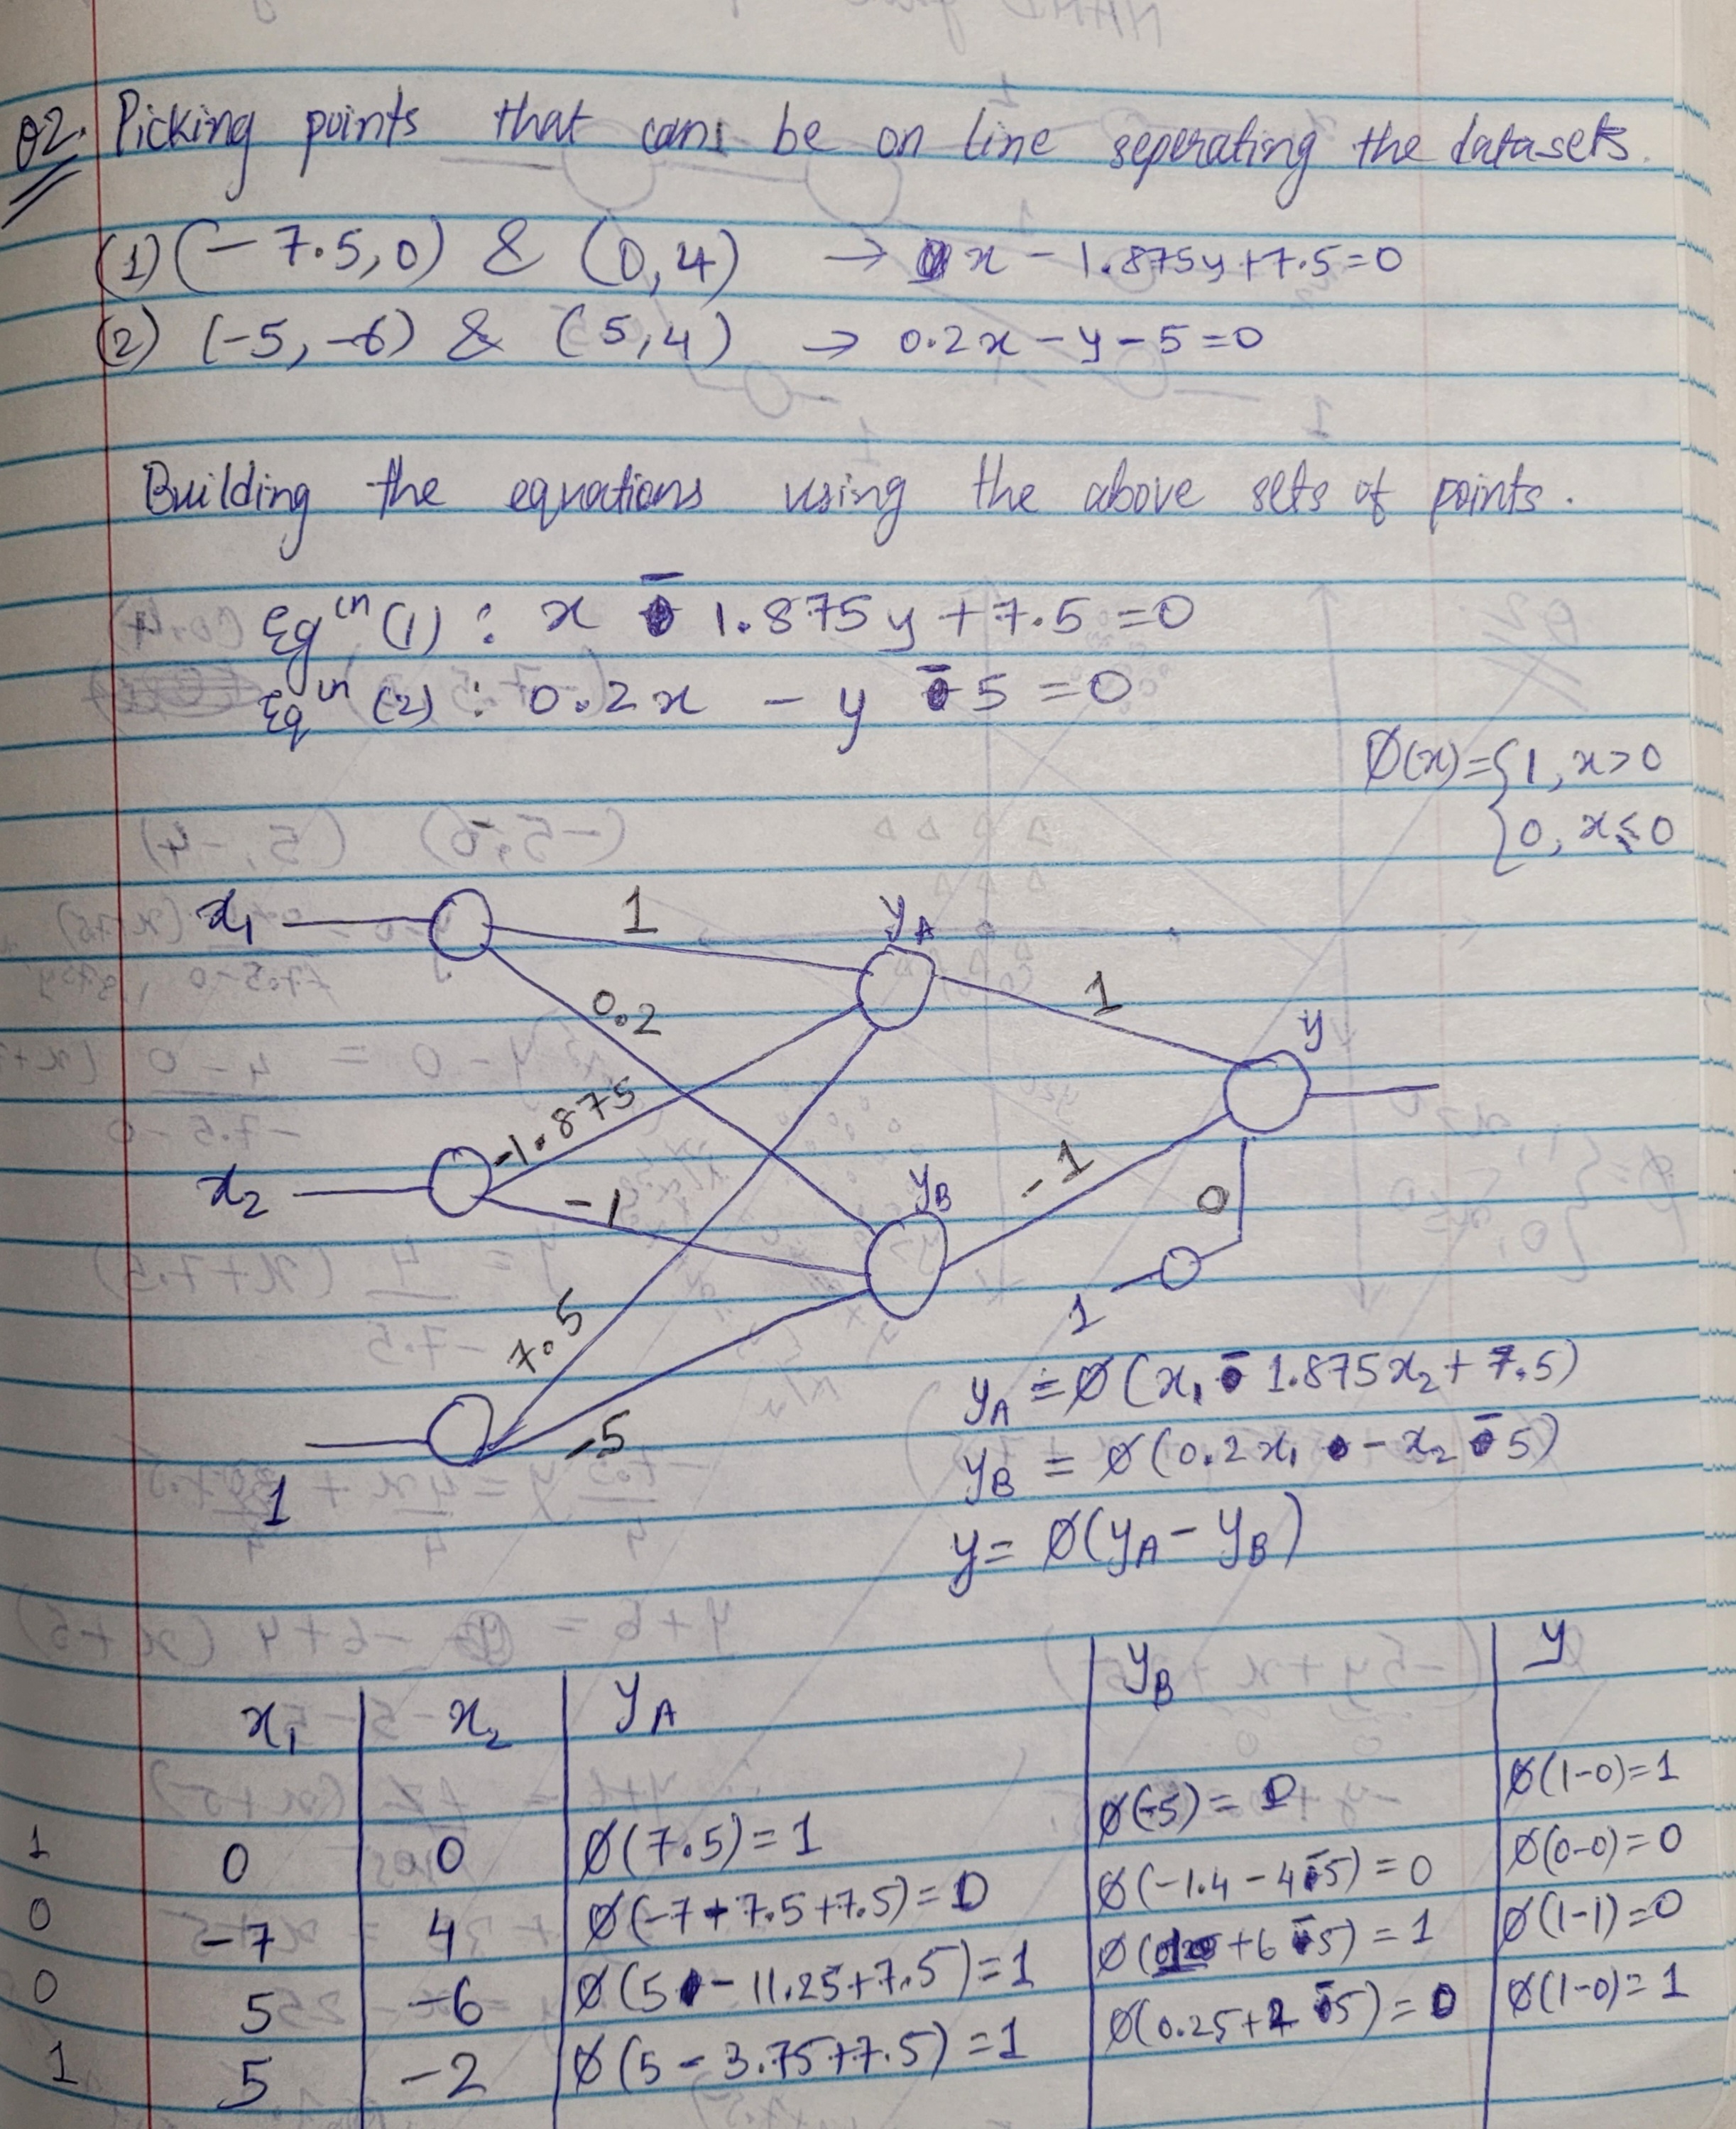 Q2. Picking points that can be on line seperating the datasets.
(1) (-7.5,0) & (0,4) → x - 1.875y+7.5=0
(2) (-5,-6) & (5,4) → 0.2x - y - 5 = 0
Building the equations using the above sets of points.
Eqⁱⁿ (1) : x - 1.875y + 7.5 = 0
Eqⁱⁿ (2) : 0.2x - y - 5 = 0
Ø(x) = { 1, x>0
{ 0, x≤0
x₁ 1 y_A
0.2 1 y
-1.875
x₂ -1 y_B -1 0
7.5 1
-5
1
y_A = Ø(x₁ - 1.875x₂ + 7.5)
y_B = Ø(0.2x₁ - x₂ - 5)
y = Ø(y_A - y_B)
x₁ x₂ y_A y_B y
1 0 0 Ø(7.5)=1 Ø(-5)= 0 Ø(1-0)=1
0 -7 4 Ø(-7+7.5+7.5)=0 Ø(-1.4-4-5)=0 Ø(0-0)=0
0 5 -6 Ø(5-11.25+7.5)=1 Ø(+6-5)=1 Ø(1-1)=0
1 5 -2 Ø(5-3.75+7.5)=1 Ø(0.25+2-5)=0 Ø(1-0)=1